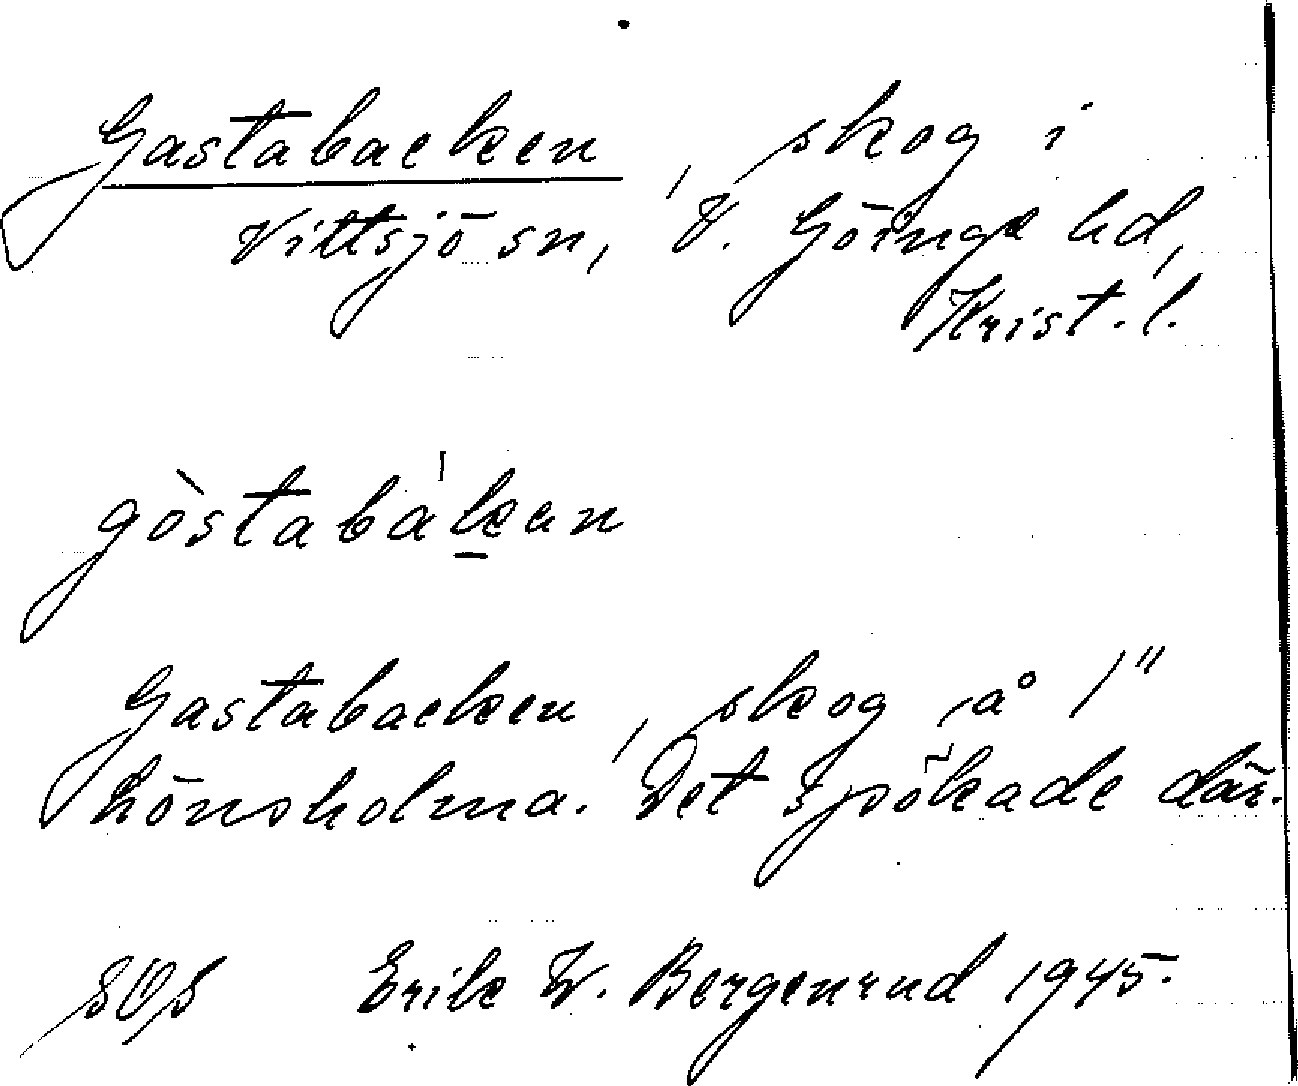 Gastabacken, skog i
Vittsjö sn, V. Göinge hd,
Krist. l.
gòstabàkan
Gastabacken, skog å 1"
Lönsholma. Det spökade där.
Erik W. Bergenrud 1945.